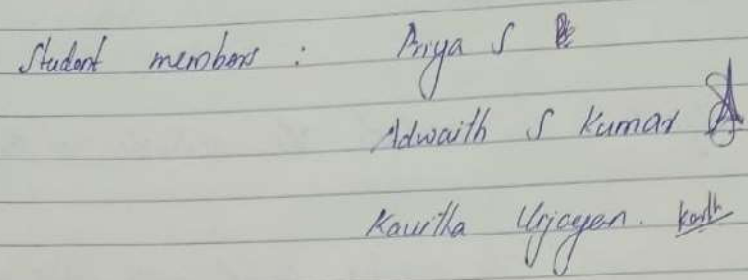 Student members : Priya S
Adwaith S Kumar
Kavitha Vijayan.